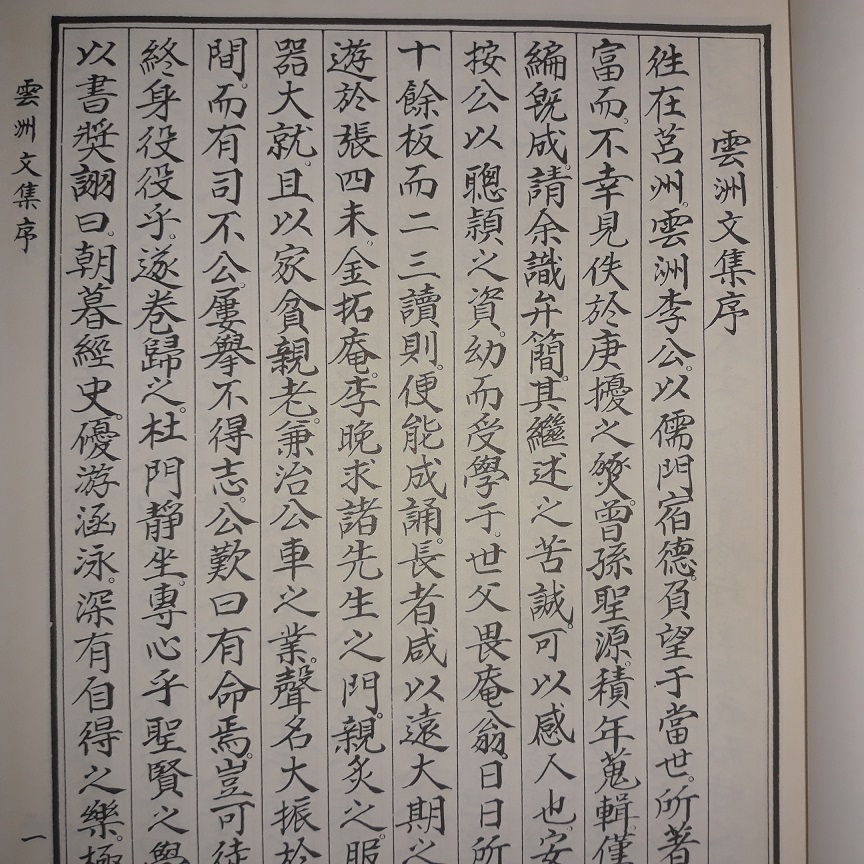 雲洲文集序
徃在莒州。雲洲李公。以儒門宿德。負望于當世。所著
富而。不幸見佚於庚擾之燹。曾孫聖源。積年蒐輯。僅
編旣成。請余識弁簡。其繼述之苦誠。可以感人也。安
按公以聰穎之資。幼而受學于。世父畏庵翁。日日所
十餘板而二三讀則。便能成誦。長者咸以遠大期之
遊於張四未。金拓庵。李晩求諸先生之門。親炙之服
器大就。且以家貧親老。兼治公車之業。聲名大振於
間。而有司不公。屢擧不得志。公歎曰有命焉。豈可徒
終身役役乎。遂卷歸之。杜門靜坐。專心乎聖賢之學
以書奬詡曰。朝暮經史。優游涵泳。深有自得之樂。極
雲洲文集序
一